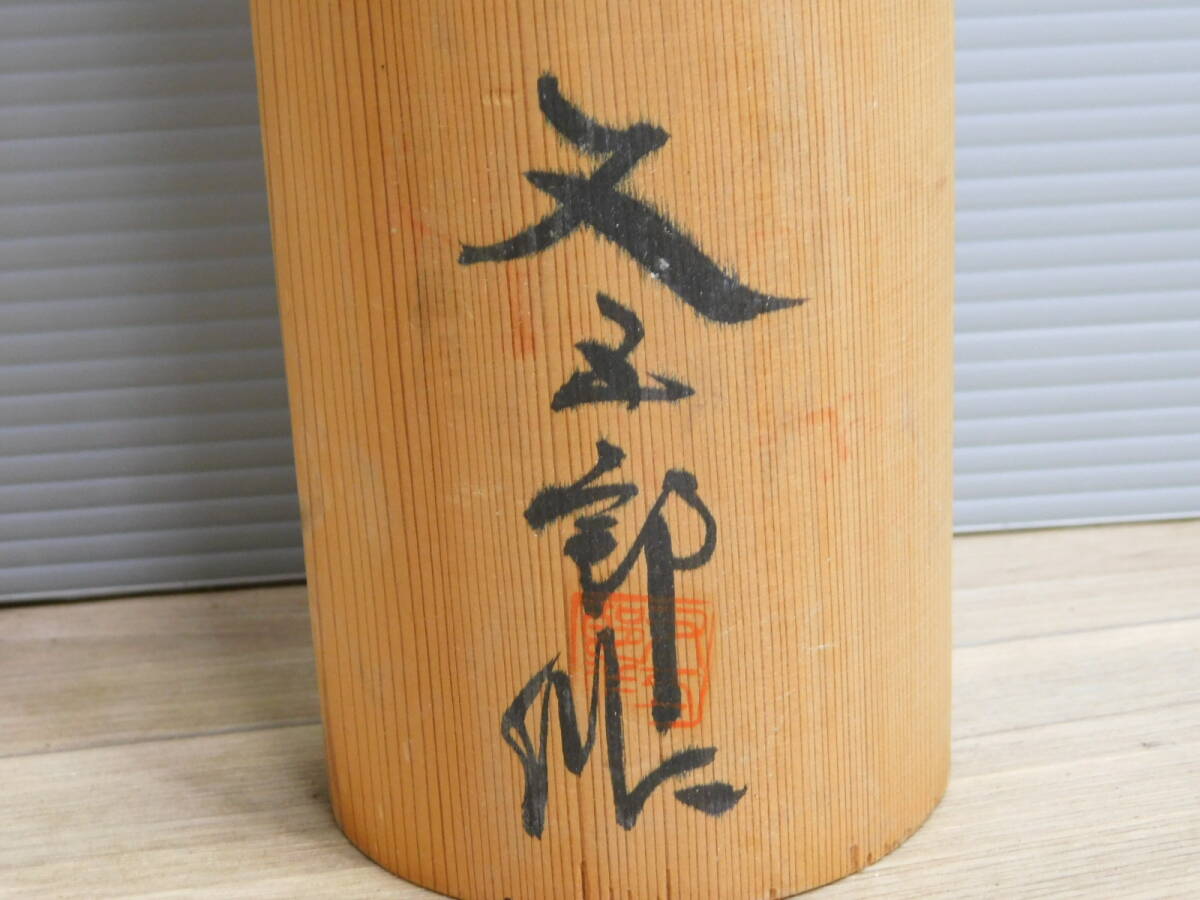 文五郎作